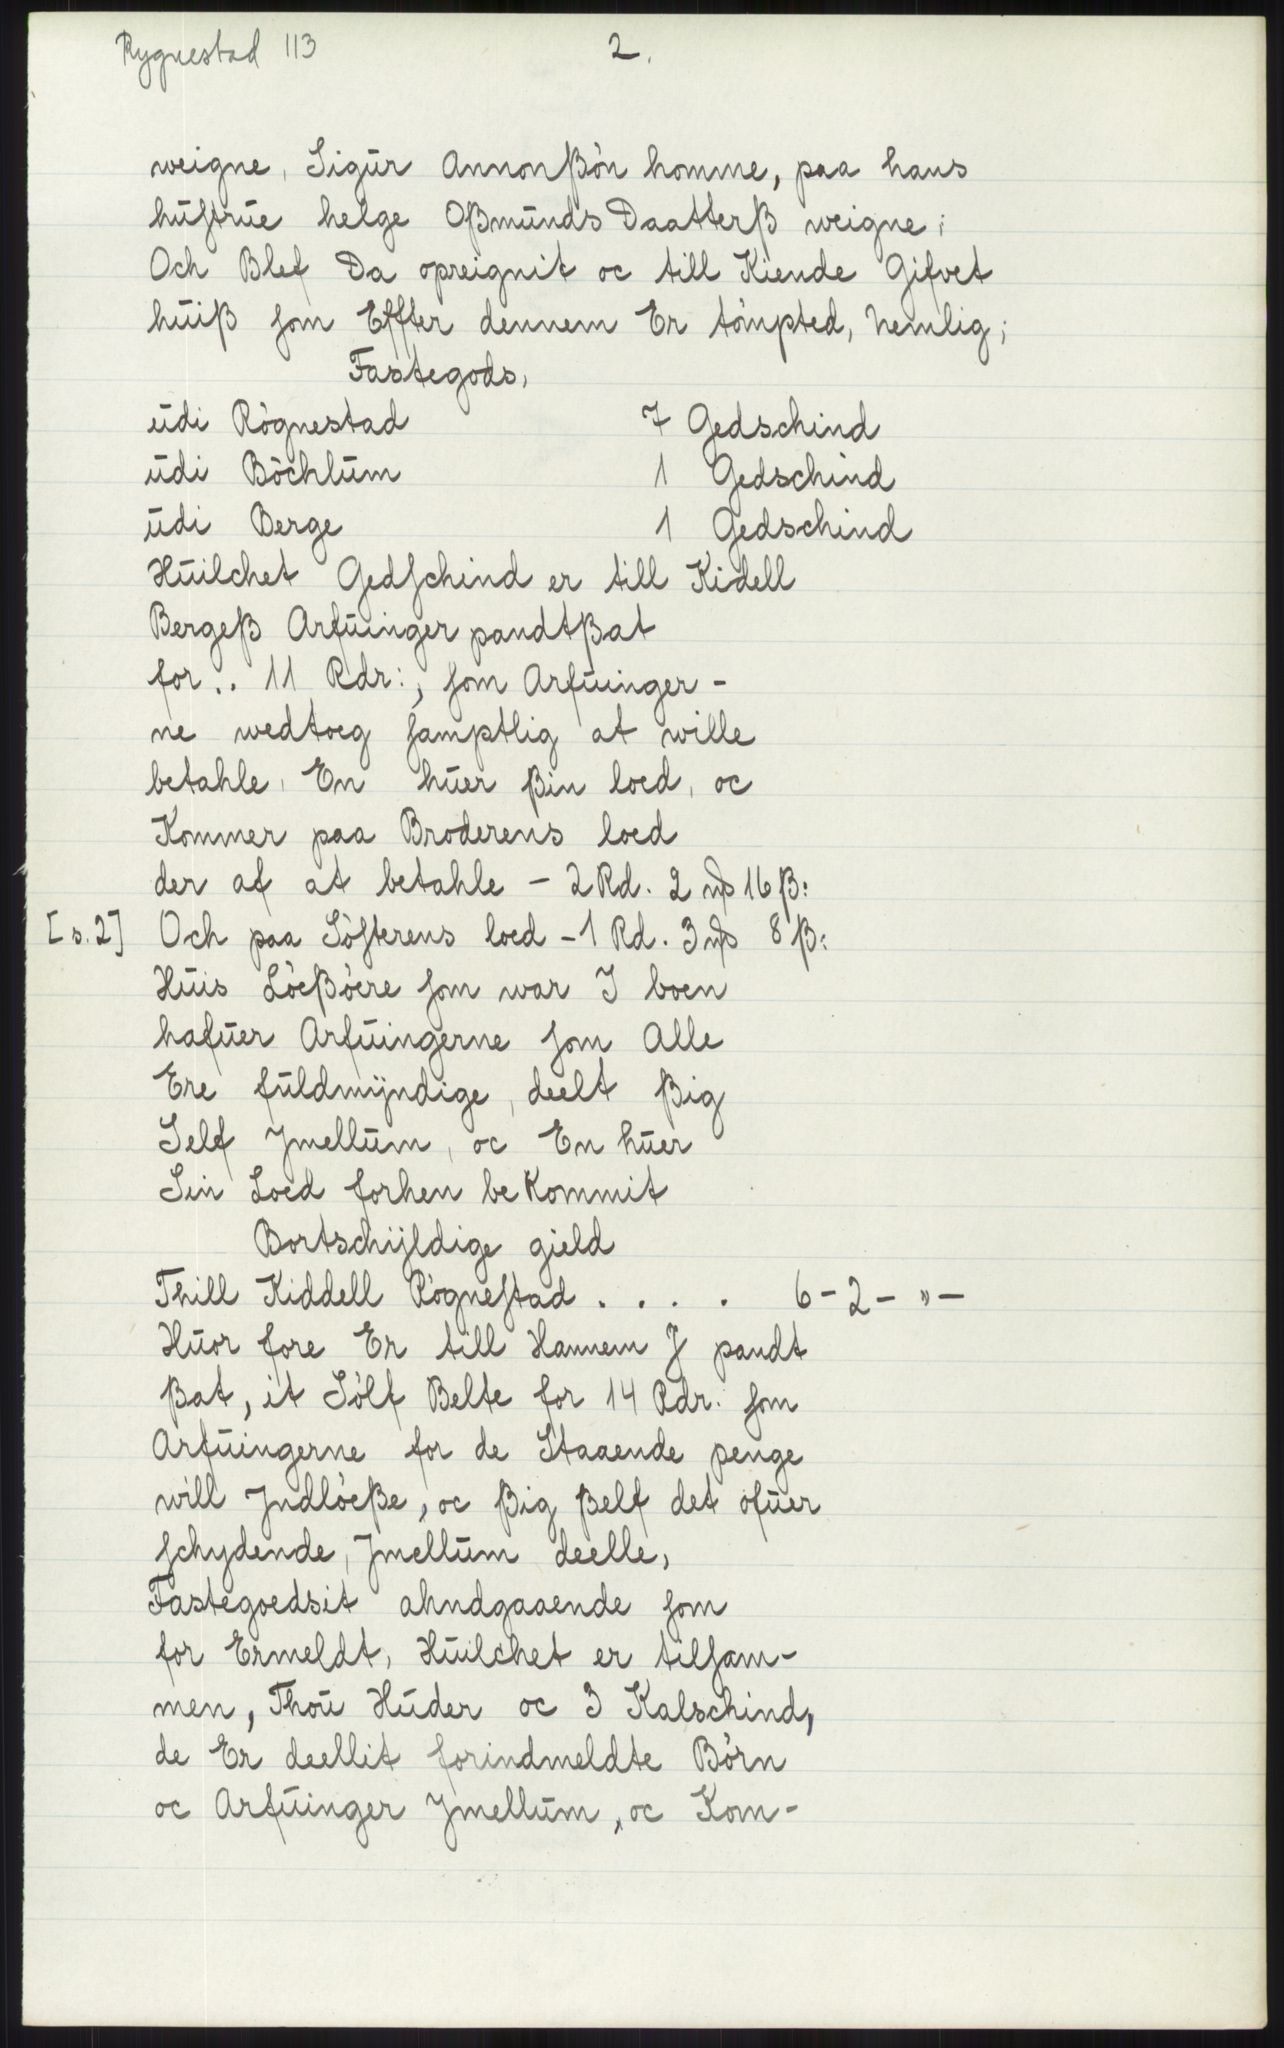 Rygnestad 113
2.
weigne, Sigūr Annonßön homme, paa hans
hūstrūe helge Oßmūnds Daatterß weigne;
Och Blef Da opreignit oc till Kiende Gifvet
hūiß som Effter dennem Er tömpted, Nemlig;
Fastegods,
ūdi Rögnestad 7 Gedschind
ūdi Böchlūm 1 Gedschind
ūdi Berge 1 Gedschind
Hūilchet Gedschind er till Kidell
Bergeß Arfūinger pandtßat
for .. 11 Rdr:, som Arfūinger-
ne wedtoeg samptlig at wille
betahle, En hūer ßin loed, oc
Kommer paa Broderens loed
der af at betahle - 2 Rd. 2 mß 16 ß:
[s. 2] Och paa Söfterens loed - 1 Rd. 3 mß 8 ß:
Hūis Löeßöere som war I boen
hafūer Arfūingerne som Alle
Ere fūldmÿndige, deelt ßig
Self Jmellūm, oc En hūer
Sin Loed forhen beKommit
Bortschÿldige gield
Thill Kiddell Rögnestad . . . . 6 - 2 - " -
Hūor fore Er till Hannem J pandt
ßat, it Sölf Belte for 14 Rdr: som
Arfūingerne for de Staaende penge
will Jndlöeße, oc ßig ßelf det ofūer
schydende, Jmellūm deelle,
Fastegoedsit ahndgaaende som
for Ermeldt, Hūilchet er tilsam-
men, Thoū Hūder oc 3 Kalschind,
de Er deellit forindmeldte Börn
oc Arfūinger Jmellūm, oc Kom-